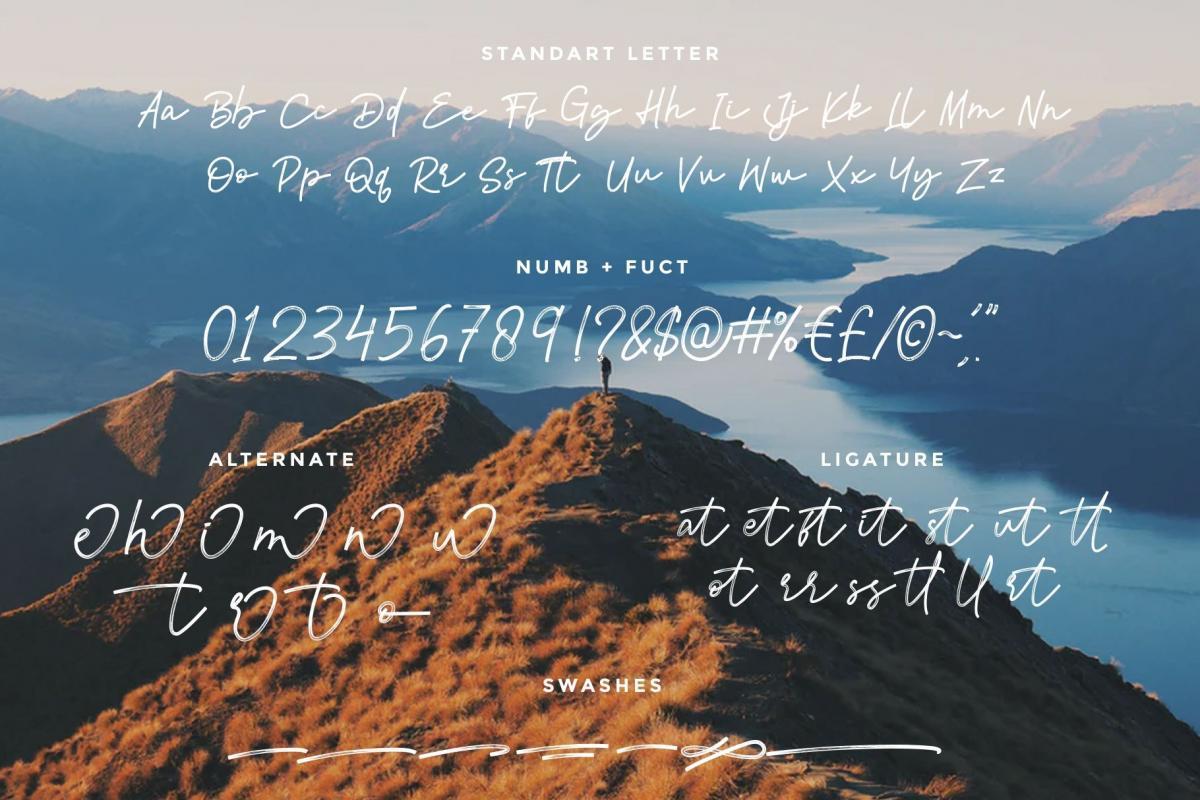 STANDART LETTER
Aa Bb Cc Dd Ee Ff Gg Hh Ii Jj Kk Ll Mm Nn
Oo Pp Qq Rr Ss Tt Uu Vv Ww Xx Yy Zz
NUMB + FUCT
0123456789!?&$@#%€£/©~,.'"
ALTERNATE
LIGATURE
e h i m n w
at et ft it st ut tt
t r t o
ot rr ss tl ll rt
SWASHES